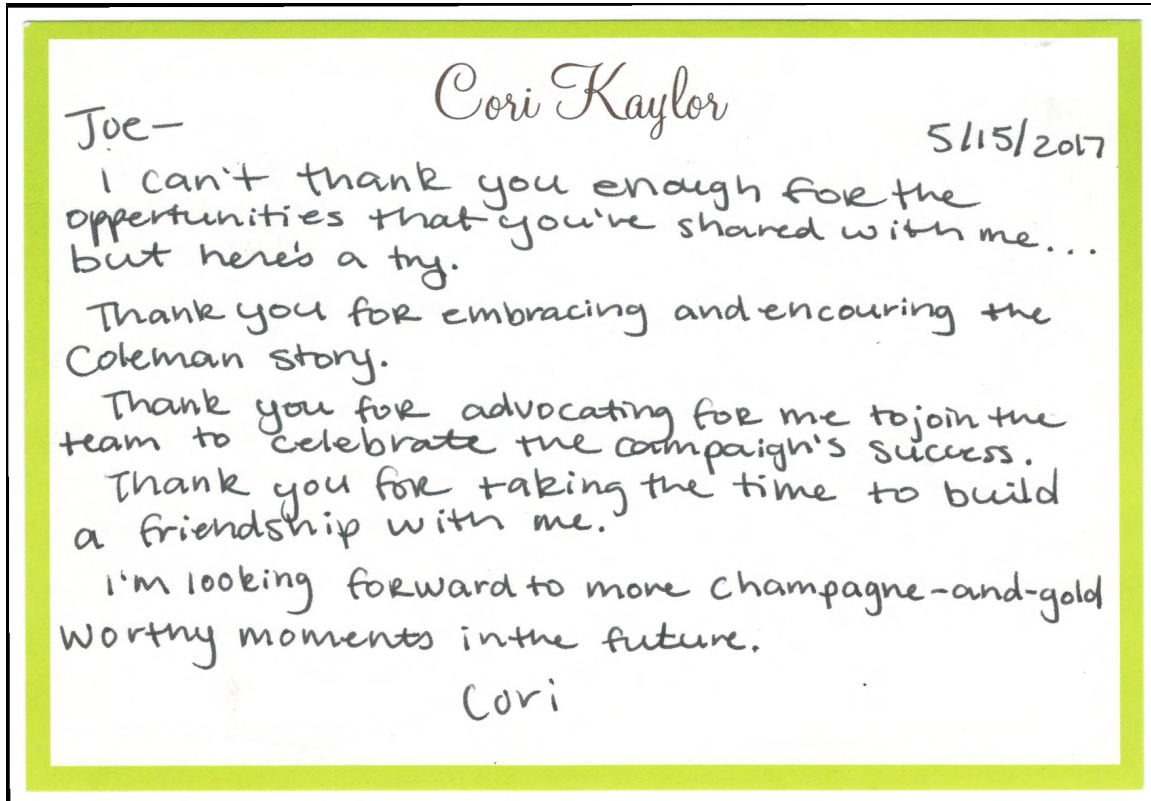 Cori Kaylor
Joe-
5/15/2017
I can't thank you enough for the
oppertunities that you've shared with me...
but here's a try.
Thank you for embracing and encouring the
Coleman story.
Thank you for advocating for me to join the
team to celebrate the campaign's success.
Thank you for taking the time to build
a friendship with me.
I'm looking forward to more champagne-and-gold
worthy moments in the future.
Cori